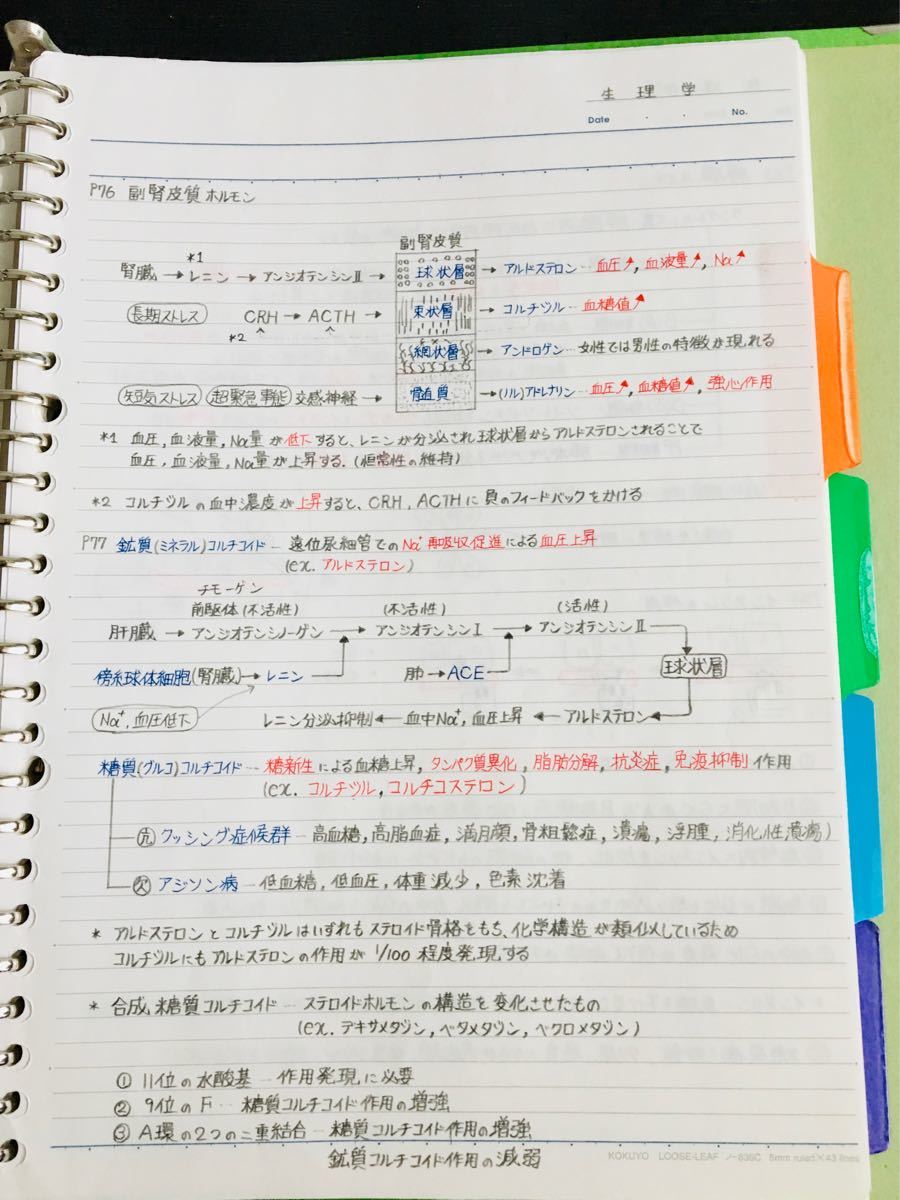 生理学
Date ・ ・ No.
P76 副腎皮質ホルモン
副腎皮質
*1
腎臓 → レニン → アンジオテンシンⅡ → 球状層 → アルドステロン … 血圧↗, 血液量↗, Na↗
長期ストレス CRH → ACTH → 束状層 → コルチゾル … 血糖値↗
*2
網状層 → アンドロゲン … 女性では男性の特徴が現れる
短気ストレス 超緊急事態 交感神経 → 髄質 → (ノル)アドレナリン … 血圧↗, 血糖値↗, 強心作用
*1 血圧, 血液量, Na量が低下すると、レニンが分泌され球状層からアルドステロンされることで
血圧, 血液量, Na量が上昇する. (恒常性の維持)
*2 コルチゾルの血中濃度が上昇すると、CRH, ACTHに負のフィードバックをかける
P77 鉱質(ミネラル)コルチコイド … 遠位尿細管でのNa⁺再吸収促進による血圧上昇
(ex. アルドステロン)
チモーゲン
前駆体(不活性) (不活性) (活性)
肝臓 → アンジオテンシノーゲン → アンジオテンシンⅠ → アンジオテンシンⅡ
傍糸球体細胞(腎臓) → レニン 肺 → ACE 球状層
Na⁺, 血圧低下 レニン分泌抑制 ← 血中Na⁺, 血圧上昇 ← アルドステロン
糖質(グルコ)コルチコイド … 糖新生による血糖上昇, タンパク質異化, 脂肪分解, 抗炎症, 免疫抑制作用
(ex. コルチゾル, コルチコステロン)
亢 クッシング症候群 … 高血糖, 高脂血症, 満月顔, 骨粗鬆症, 潰瘍, 浮腫, 消化性潰瘍)
欠 アジソン病 … 低血糖, 低血圧, 体重減少, 色素沈着
* アルドステロンとコルチゾルはいずれもステロイド骨格をもち、化学構造が類似しているため
コルチゾルにもアルドステロンの作用が 1/100 程度発現する
* 合成糖質コルチコイド … ステロイドホルモンの構造を変化させたもの
(ex. デキサメタゾン, ベタメタゾン, ベクロメタゾン)
① 11位の水酸基 … 作用発現に必要
② 9位のF … 糖質コルチコイド作用の増強
③ A環の2つの二重結合 … 糖質コルチコイド作用の増強
鉱質コルチコイド作用の減弱
KOKUYO LOOSE-LEAF ノ-836C 5mm ruled×43 lines